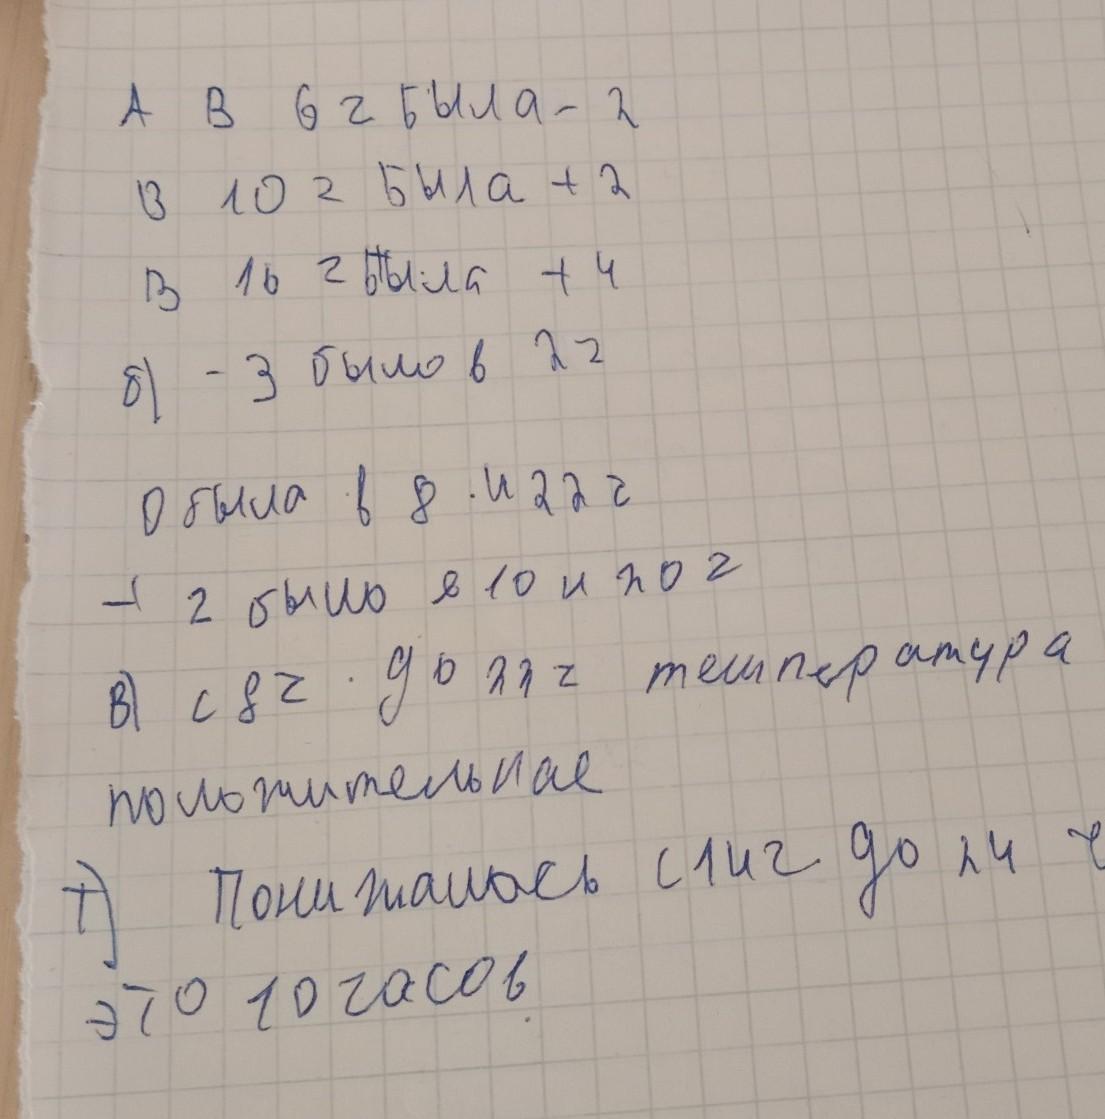 А В 6 ч была - 2
В 10 ч была + 2
В 16 ч была + 4
б) - 3 было в 2 ч
0 была в 8 и 22 ч
+ 2 было в 10 и 20 ч
В) с 8 ч до 22 ч температура
положительная
Г) Понижалось с 14 ч до 24 ч
это 10 часов